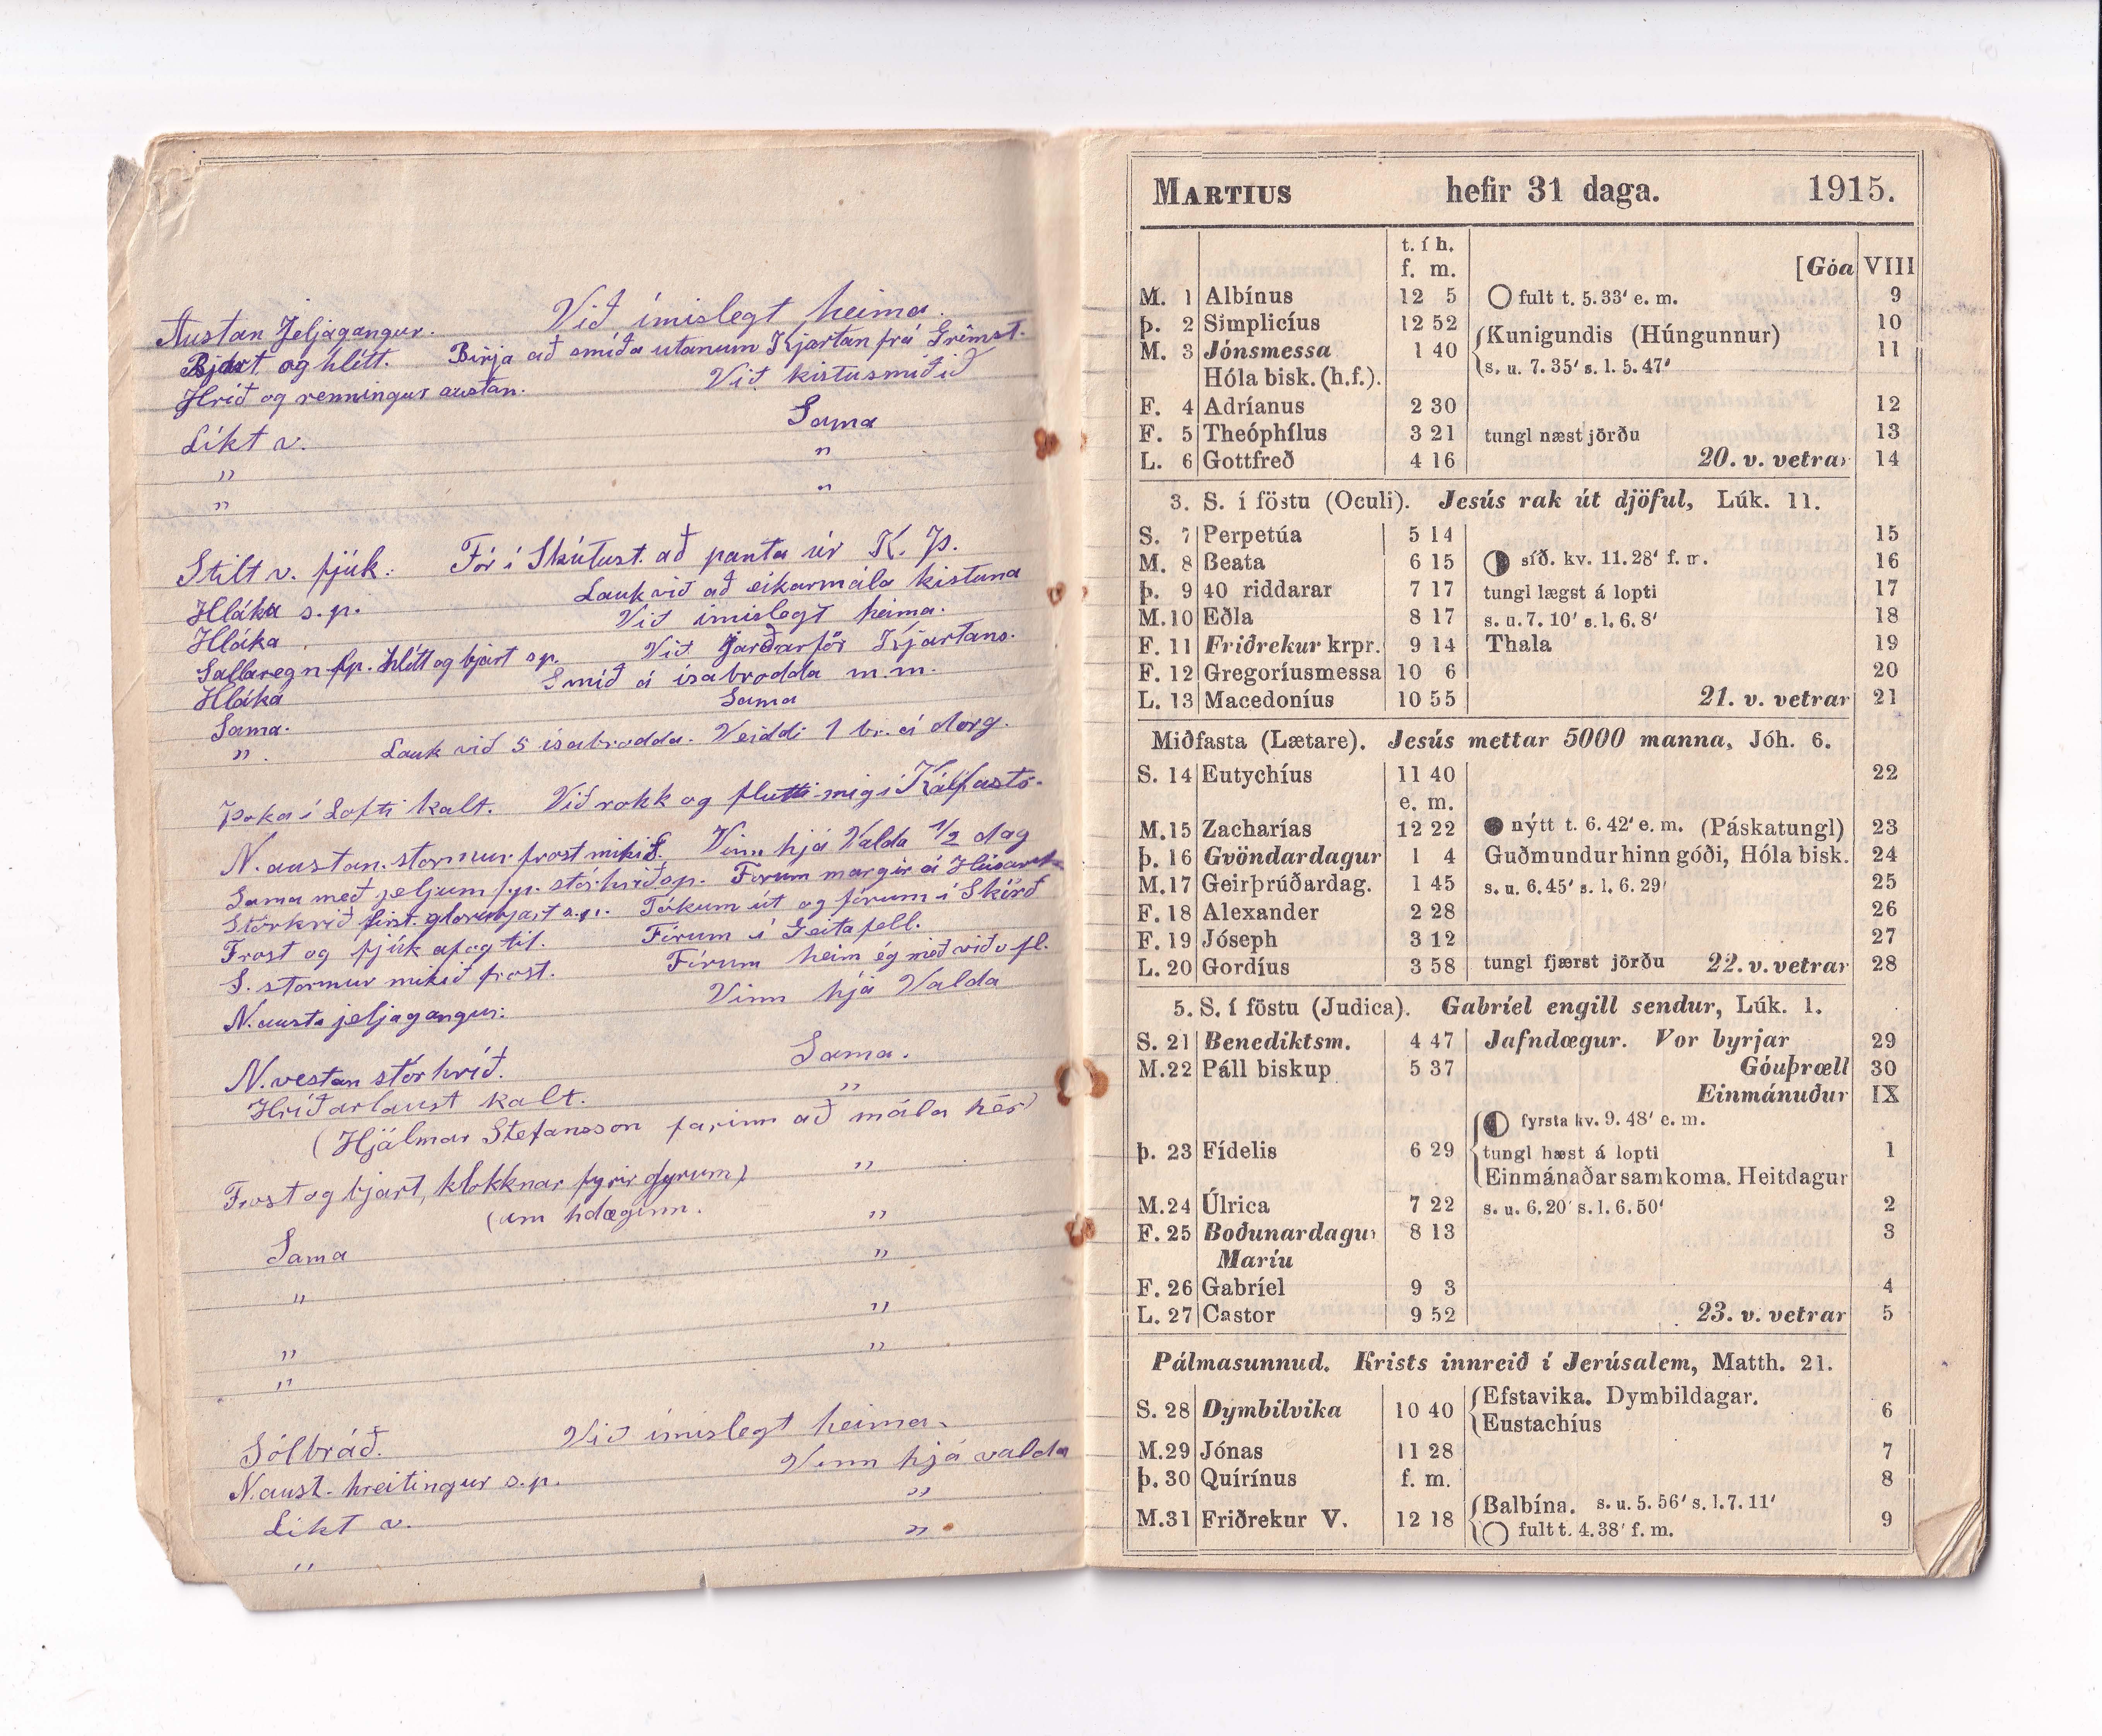 Við ímislegt heima.
Austan Jeljagangur.
Bjart og hlítt. Birja að smíða utanum Kjartan frá Grímst.
Hríð og renningur austan. Við kistusmíðið
Líkt v. Sama
" "
" "
Stilt v. fjúk. Fór í Skútust. að panta úr K. Þ.
Hláka s.p. Lauk við að eikarmála kistuna
Hláka Við ímislegt heima.
Sallaregn fp. hlítt og bjart sp. Við Jarðarför Kjartans.
Hláka Smíð á ísabrodda m.m.
Sama. Sama
" . Lauk við 5 ísabrodda. Veiddi 1 br. á dorg.
Þoka í Lofti kalt. Við rokk og flutti mig í Kálfastr.
N. austan. stormur frost mikið. Vinn hjá Valda 1/2 dag
Sama með jeljum fp. stórhríð sp. Fórum margir á Húsavík
Stórhríð first. bjart s.p. Tókum út og fórum í Skörð
Frost og fjúk af og til. Fórum í Geitafell.
S. stormur mikið frost. Fórum heim ég með við o fl.
N. austa jeljagangur. Vinn hjá Valda
N. vestan stórhríð. Sama.
Hríðarlaust kalt. "
(Hjálmar Stefansson farinn að mála hér)
Frost og bjart, klökknar fyrir dyrum) "
(um hdæginn. "
Sama "
" "
" "
"
Sólbráð. Við ímislegt heima.
N. aust. hreitingur s.p. Vinn hjá Valda
Líkt v. "
" "
MARTIUS hefir 31 daga. 1915.
t. í h.
f. m. [Góa VIII
M. 1 Albínus 12 5 fult t. 5.33' e. m. 9
Þ. 2 Simplicíus 12 52 10
M. 3 Jónsmessa 1 40 Kunigundis (Húngunnur) 11
Hóla bisk. (h.f.). s. u. 7.35' s. l. 5.47'
F. 4 Adríanus 2 30 12
F. 5 Theóphílus 3 21 tungl næst jörðu 13
L. 6 Gottfreð 4 16 20. v. vetrar 14
3. S. í föstu (Oculi). Jesús rak út djöful, Lúk. 11.
S. 7 Perpetúa 5 14 15
M. 8 Beata 6 15 síð. kv. 11.28' f. m. 16
Þ. 9 40 riddarar 7 17 tungl lægst á lopti 17
M. 10 Eðla 8 17 s. u. 7. 10' s. l. 6. 8' 18
F. 11 Friðrekur krpr. 9 14 Thala 19
F. 12 Gregoríusmessa 10 6 20
L. 13 Macedoníus 10 55 21. v. vetrar 21
Miðfasta (Lætare). Jesús mettar 5000 manna, Jóh. 6.
S. 14 Eutychíus 11 40 22
e. m.
M. 15 Zacharías 12 22 nýtt t. 6.42' e. m. (Páskatungl) 23
Þ. 16 Gvöndardagur 1 4 Guðmundur hinn góði, Hóla bisk. 24
M. 17 Geirþrúðardag. 1 45 s. u. 6.45' s. l. 6.29' 25
F. 18 Alexander 2 28 26
F. 19 Jóseph 3 12 27
L. 20 Gordíus 3 58 tungl fjærst jörðu 22. v. vetrar 28
5. S. í föstu (Judica). Gabríel engill sendur, Lúk. 1.
S. 21 Benediktsm. 4 47 Jafndægur. Vor byrjar 29
M. 22 Páll biskup 5 37 Góuþræll 30
Einmánuður IX
fyrsta kv. 9. 48' e. m.
Þ. 23 Fídelis 6 29 tungl hæst á lopti 1
Einmánaðarsamkoma. Heitdagur
M. 24 Úlrica 7 22 s. u. 6.20' s. l. 6.50' 2
F. 25 Boðunardagur 8 13 3
Maríu
F. 26 Gabríel 9 3 4
L. 27 Castor 9 52 23. v. vetrar 5
Pálmasunnud. Krists innreið í Jerúsalem, Matth. 21.
S. 28 Dymbilvika 10 40 Efstavika. Dymbildagar. 6
Eustachíus
M. 29 Jónas 11 28 7
Þ. 30 Quírínus f. m. 8
M. 31 Friðrekur V. 12 18 Balbína. s. u. 5. 56' s. l. 7. 11' 9
fult t. 4.38' f. m.